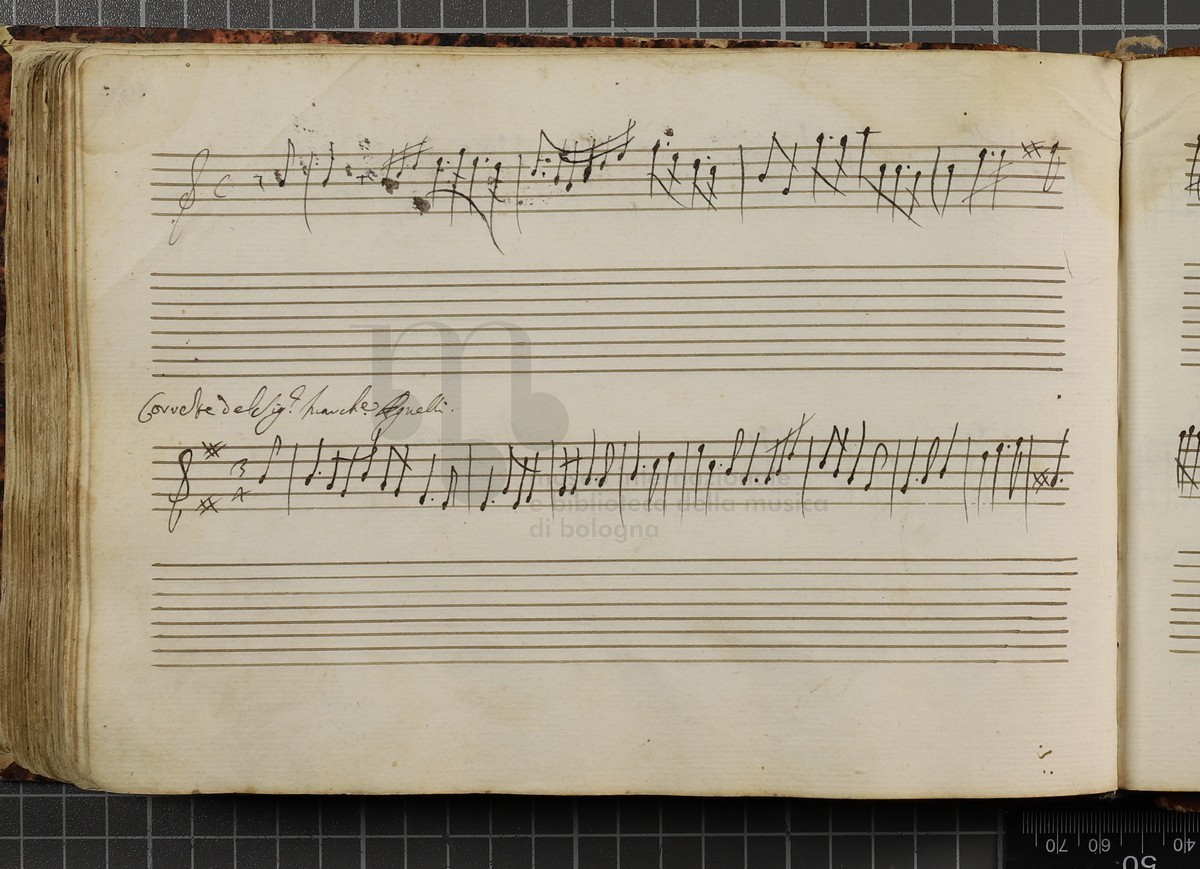 C
Corrente del Sig.r March.e Agnelli.
3
4
m
museo internazionale
e biblioteca della musica
di bologna
70
60
40
50